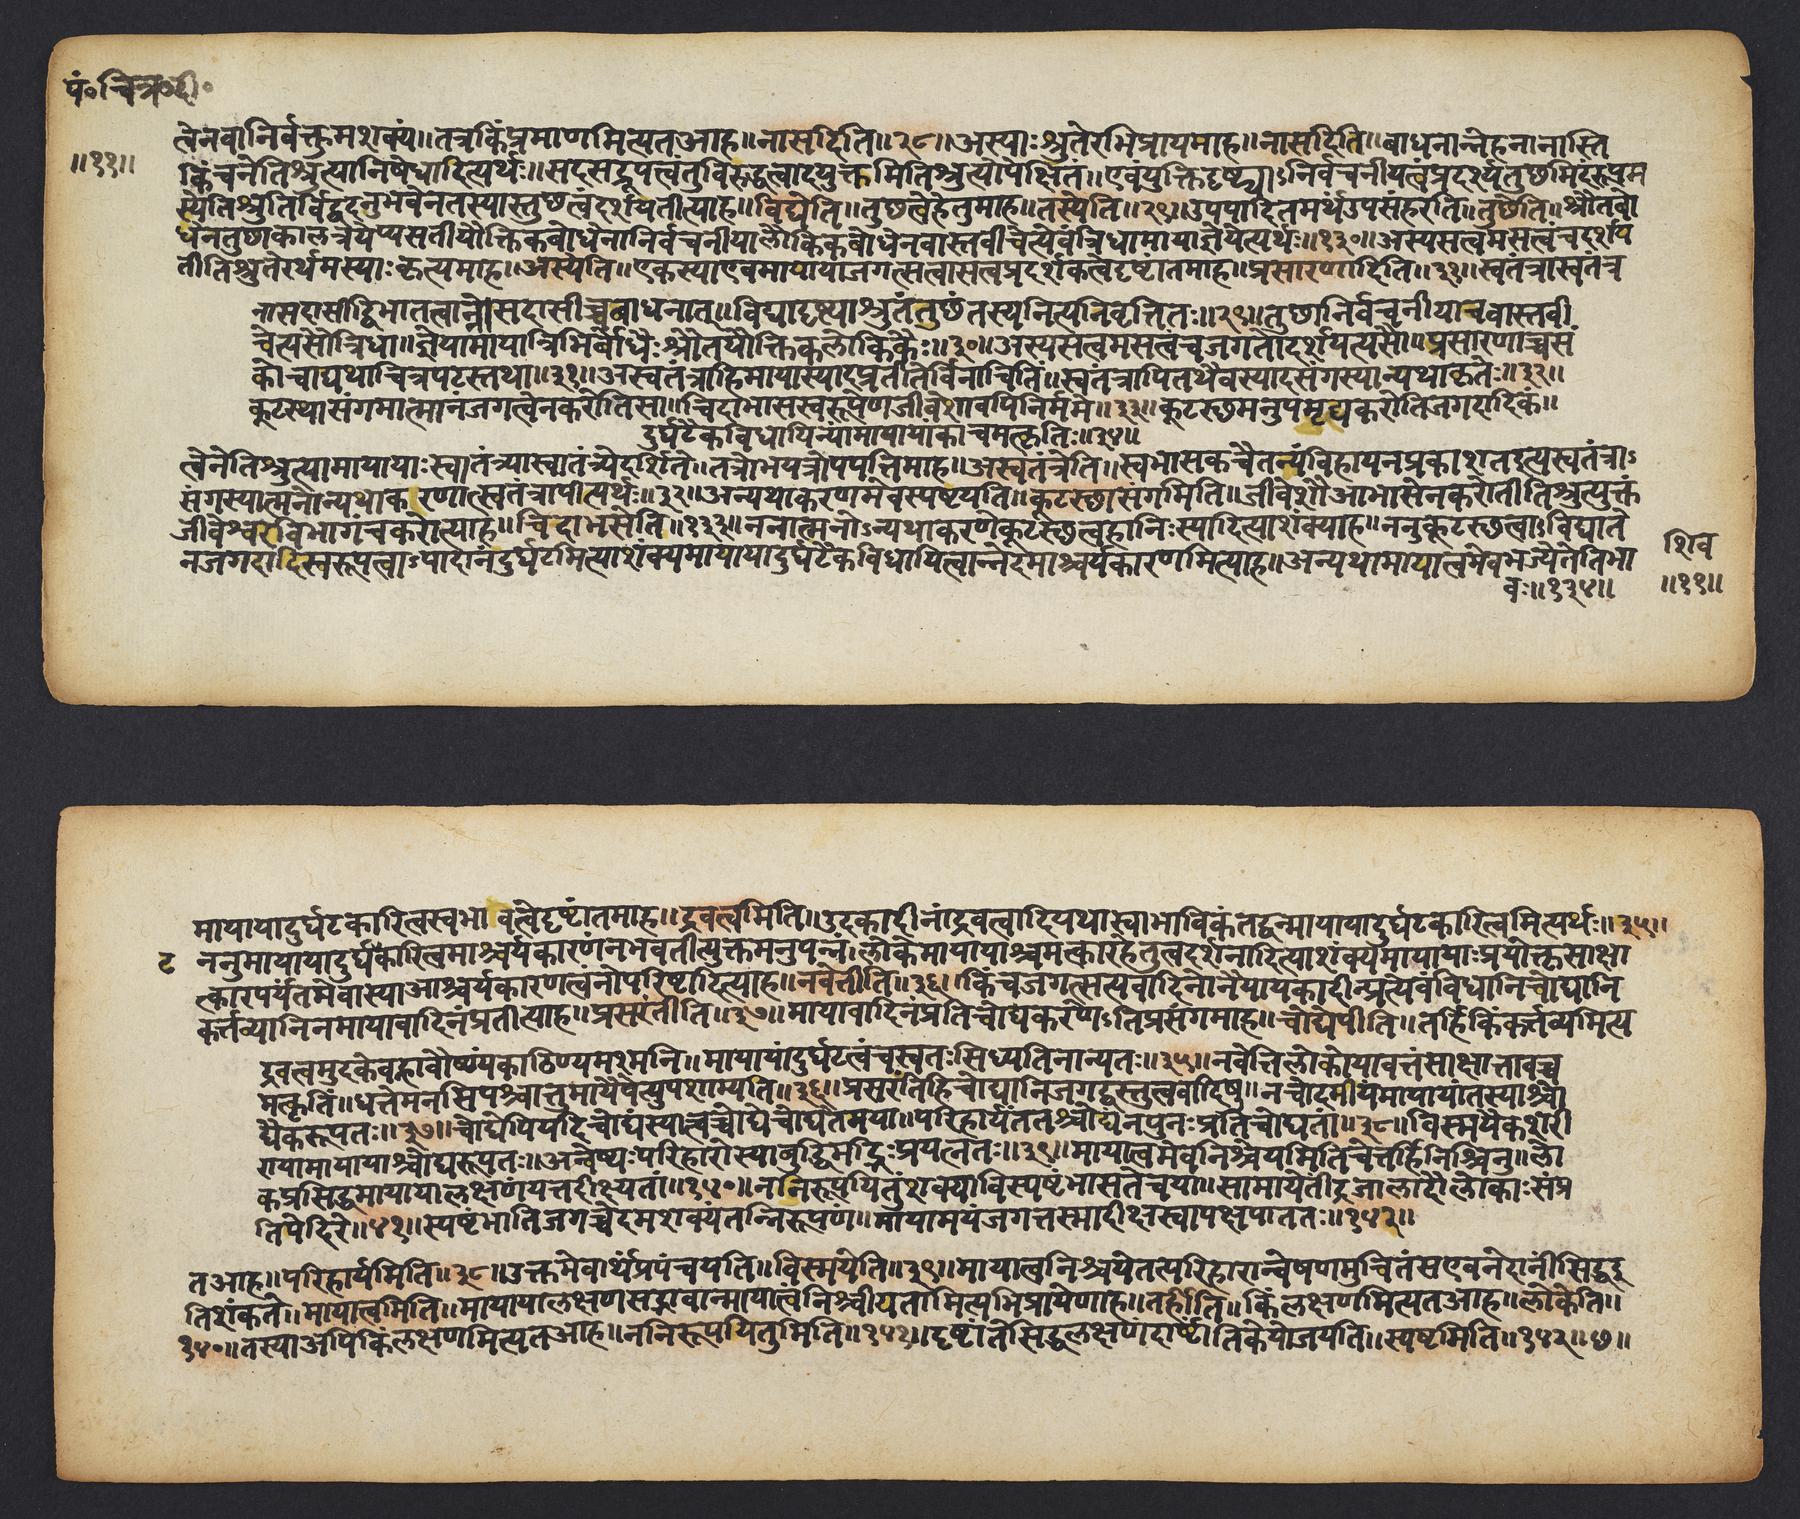 पं॰चित्र॰दी॰
त्वेनवानिर्वक्तुमशक्यं॥तत्रकिंप्रमाणमित्यतआह॥नासदिति॥२८॥अस्याःश्रुतेरभिप्रायमाह॥नासदिति॥बाधनान्नेहनानास्ति
॥११॥
किंचनेतिश्रुत्यानिषेधादित्यर्थः॥सदसद्रूपत्वंतुविरुद्धत्वादयुक्तमितिश्रुत्योपेक्षितं॥एवंयुक्तिदृष्ट्याऽनिर्वचनीयत्वंप्रदर्श्यतुछमिदंरूपम
स्येतिश्रुतिर्विद्वदनुभवेनतस्यास्तुछत्वंदर्शयतीत्याह॥विद्येति॥तुछत्वेहेतुमाह॥तस्येति॥२९॥उपपादितमर्थउपसंहरति॥तुछेति॥श्रौतबो
धेनतुछाकालत्रयेप्यसतीयौक्तिकबोधेनानिर्वचनीयालौकिकबोधेनवास्तवीचेत्येवंत्रिधामायाज्ञेयेत्यर्थः॥१३०॥अस्यसत्वमसत्वंचदर्शय
तीतिश्रुतेरर्थमस्याःकृत्यमाह॥अस्येति॥एकस्याएवमायायाजगत्सत्वासत्वप्रदर्शकत्वेदृष्टांतमाह॥प्रसारणादिति॥३१॥स्वतंत्रास्वतंत्र
नासदासीद्विभातत्वान्नोसदासीच्चबाधनात्॥विद्यादृष्ट्याश्रुतंतुछंतस्यनित्यनिवृत्तितः॥२९॥तुछानिर्वचनीयाचवास्तवी
चेत्यसौत्रिधा॥ज्ञेयामायात्रिभिर्बोधैःश्रौतयौक्तिकलौकिकैः॥३०॥अस्यसत्वमसत्वंचजगतोदर्शयत्यसौ॥प्रसारणाच्चसं
कोचाद्यथाचित्रपटस्तथा॥३१॥अस्वतंत्राहिमायास्यादप्रतीतेर्विनाचितिं॥स्वतंत्रापितथैवस्यादसंगस्यान्यथाकृतेः॥३२॥
कूटस्थासंगमात्मानंजगत्वेनकरोतिसा॥चिदाभासस्वरूपेणजीवेशावपिनिर्ममे॥३३॥कूटस्छमनुपमृद्यकरोतिजगदादिकं॥
दुर्घटैकविधायिन्यांमायायांकाचमत्कृतिः॥३४॥
त्वेनेतिश्रुत्यामायायाःस्वातंत्र्यास्वातंत्र्येदर्शिते॥तत्रोभयत्रोपपत्तिमाह॥अस्वतंत्रेति॥स्वभासकचैतन्यंविहायनप्रकाशतइत्यस्वतंत्राऽ
संगस्यात्मनोन्यथाकरणात्स्वतंत्रापीत्यर्थः॥३२॥अन्यथाकरणमेवस्पष्टयति॥कूटस्छासंगमिति॥जीवेशौआभासेनकरोतीतिश्रुत्युक्तं
जीवेश्वरविभागंचकरोत्याह॥चिदाभासेति॥१३३॥ननात्मनोऽन्यथाकरणेकूटस्छत्वहानिःस्यादित्याशंक्याह॥ननुकूटस्छत्वाऽविद्याते
नजगदादिस्वरूपत्वाऽपादानंदुर्घटमित्याशंक्यमायायादुर्घटैकविधायित्वान्नेदमाश्चर्यकारणमित्याह॥अन्यथामायात्वमेवभज्येतेतिभा
वः॥१३४॥
शिव
॥११॥
मायायादुर्घटकारित्वस्वभावत्वेदृष्टांतमाह॥द्रवत्वमिति॥उदकादीनांद्रवत्वादियथास्वाभाविकंतद्वन्मायायादुर्घटकारित्वमित्यर्थः॥३५॥
ट
ननुमायायादुर्घकारित्वमाश्चर्यकारणंनभवतीत्युक्तमनुपन्नं॥लोकेमायायाश्चमत्कारहेतुत्वदर्शनादित्याशंक्यमायायाःप्रयोक्तृसाक्षा
त्कारपर्यंतमेवास्याआश्चर्यकारणत्वंनोपरिष्टादित्याह॥नवेतीति॥३६॥किंचजगत्सत्यवादिनोनैयायकादीन्प्रत्येवंविधानिचोद्यानि
कर्त्तव्यानिनमायावादिनंप्रतीत्याह॥प्रसरंतीति॥३७॥मायावादिनंप्रतिचोद्यकरणेऽतिप्रसंगमाह॥चोद्येपीति॥तर्हिकिंकर्त्तव्यमित्य
द्रवत्वमुदकेवह्नावौष्ण्यंकाठिण्यमश्मनि॥मायायांदुर्घटत्वंचस्वतःसिध्यतिनान्यतः॥३५॥नवेत्तिलोकोयावत्तंसाक्षात्तावच्च
मत्कृतिं॥धत्तेमनसिपश्चात्तुमायैषेत्युपशाम्यति॥३६॥प्रसरंतिहिचोद्यानिजगद्वस्तुत्ववादिषु॥नचोदनीयंमायायांतस्याश्चो
द्यैकरूपतः॥३७॥चोद्येपियदिचोद्यंस्यात्वच्चोद्येचोद्यतेमया॥परिहार्यंततश्चोद्यंनपुनःप्रतिचोद्यतां॥३८॥विस्मयैकशरी
रायामायायाश्चोद्यरूपतः॥अन्वेष्यःपरिहारोस्याबुद्धिमद्भिःप्रयत्नतः॥३९॥मायात्वमेवनिश्चेयमितिचेत्तर्हिनिश्चिनु॥लो
कप्रसिद्धमायायालक्षणंयत्तदीक्ष्यतां॥१४०॥ननिरूपयितुंशक्याविस्पष्टंभासतेचया॥सामायेतींद्रजालादौलोकाःसंप्र
तिपेदिरे॥४१॥स्पष्टंभातिजगच्चेदमशक्यंतन्निरूपणं॥मायामयंजगत्तस्मादीक्षस्वापक्षपाततः॥१४२॥
तआह॥परिहार्यमिति॥३८॥उक्तमेवार्थंप्रपंचयति॥विस्मयेति॥३९॥मायात्वनिश्चयेतत्परिहारान्वेषणमुचितंसएवनेदानींसिद्धइ
तिशंकते॥मायात्वमिति॥मायायालक्षणसद्भावान्मायात्वंनिश्चीयतामित्यभिप्रायेणाह॥तर्हीति॥किंलक्षणमित्यतआह॥लोकेति॥
१४०॥तस्याअपिकिंलक्षणमित्यतआह॥ननिरूपयितुमिति॥१४१॥दृष्टांतेसिद्धलक्षणंदार्ष्टांतिकेयोजयति॥स्पष्टमिति॥१४२॥छ॥